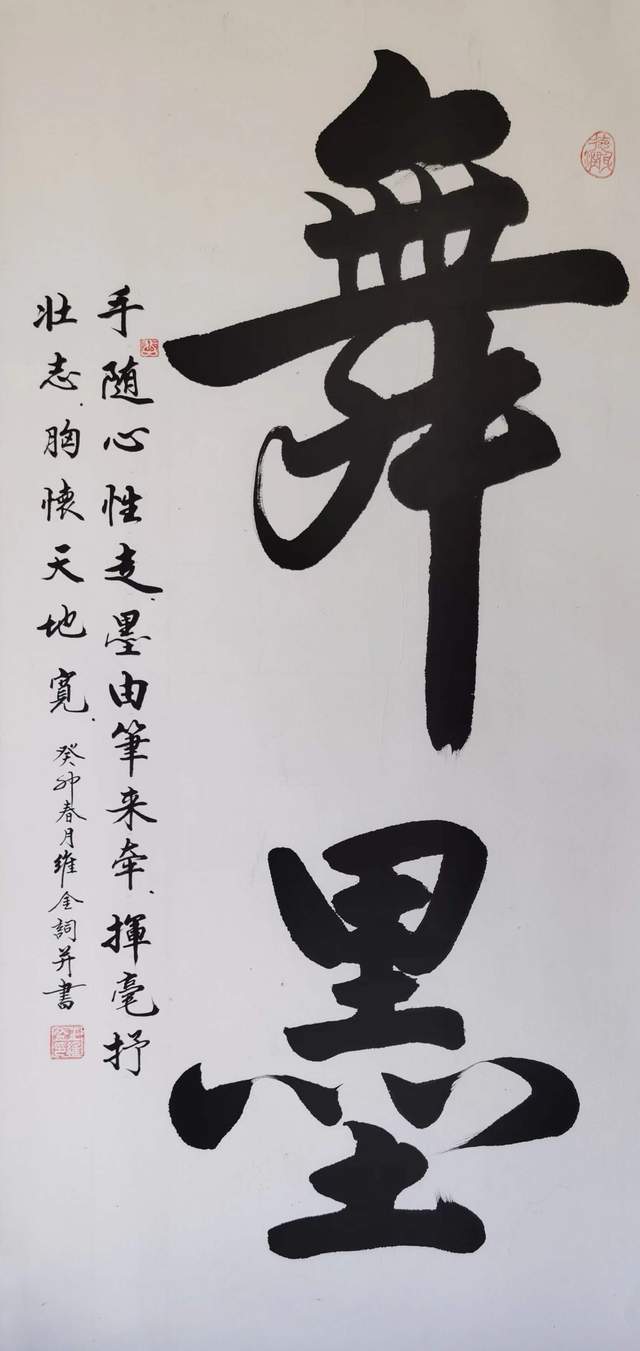 舞墨
手随心性走、墨由筆来牵、揮毫抒
壮志、胸懷天地寬、
癸卯春月維金詞并書